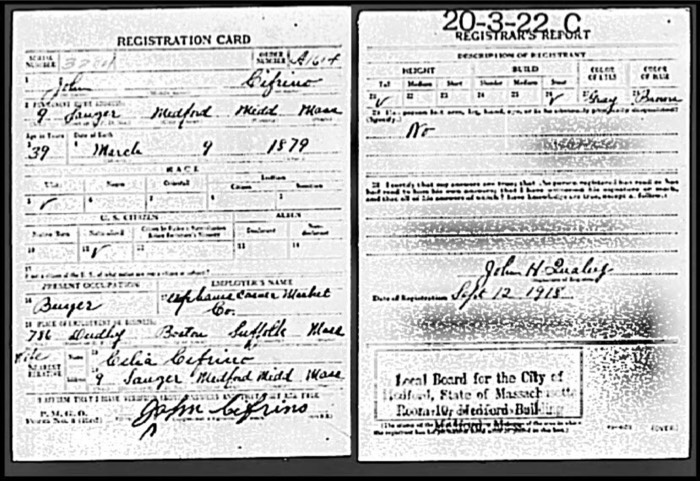 REGISTRATION CARD
SERIAL NUMBER
ORDER NUMBER A1614
1 John Cifrino
2 PERMANENT HOME ADDRESS:
9 Sanger Medford Midd Mass
Age in Years Date of Birth
3 39 4 March 9 1879
RACE
White Negro Oriental Indian
Citizen
5 ✓ 6 7 8 9
U. S. CITIZEN ALIEN
Native Born Naturalized Declarant
10 11 ✓ 12 13 14
15
PRESENT OCCUPATION EMPLOYER'S NAME
16 Buyer 17 Market Co.
18 PLACE OF EMPLOYMENT OR BUSINESS:
786 Dudley Boston Suffolk Mass
Wife
NEAREST RELATIVE
Name 19 Celia Cifrino
Address 20 9 Sanger Medford Midd Mass
I AFFIRM THAT I HAVE VERIFIED ABOVE ANSWERS AND THAT THEY ARE TRUE
P. M. G. O.
Form No. 1 (Red)
John Cifrino
(OVER)
20-3-22 C
REGISTRAR'S REPORT
DESCRIPTION OF REGISTRANT
HEIGHT BUILD COLOR OF EYES COLOR OF HAIR
Tall Medium Short Slender Medium Stout
21 ✓ 22 23 24 25 26 ✓ 27 Gray 28 Brown
29 Has person lost arm, leg, hand, eye, or is he obviously physically disqualified?
(Specify.)
No
30 I certify that my answers are true; that the person registered has read or has
had read to him his own answers; that I have witnessed his signature or mark,
and that all of his answers of which I have knowledge are true, except as follows:
John H.
Date of Registration Sept 12 1918
Local Board for the City of
Medford, State of Massachusetts
Room 10, Medford Building
Medford, Mass.
(OVER)